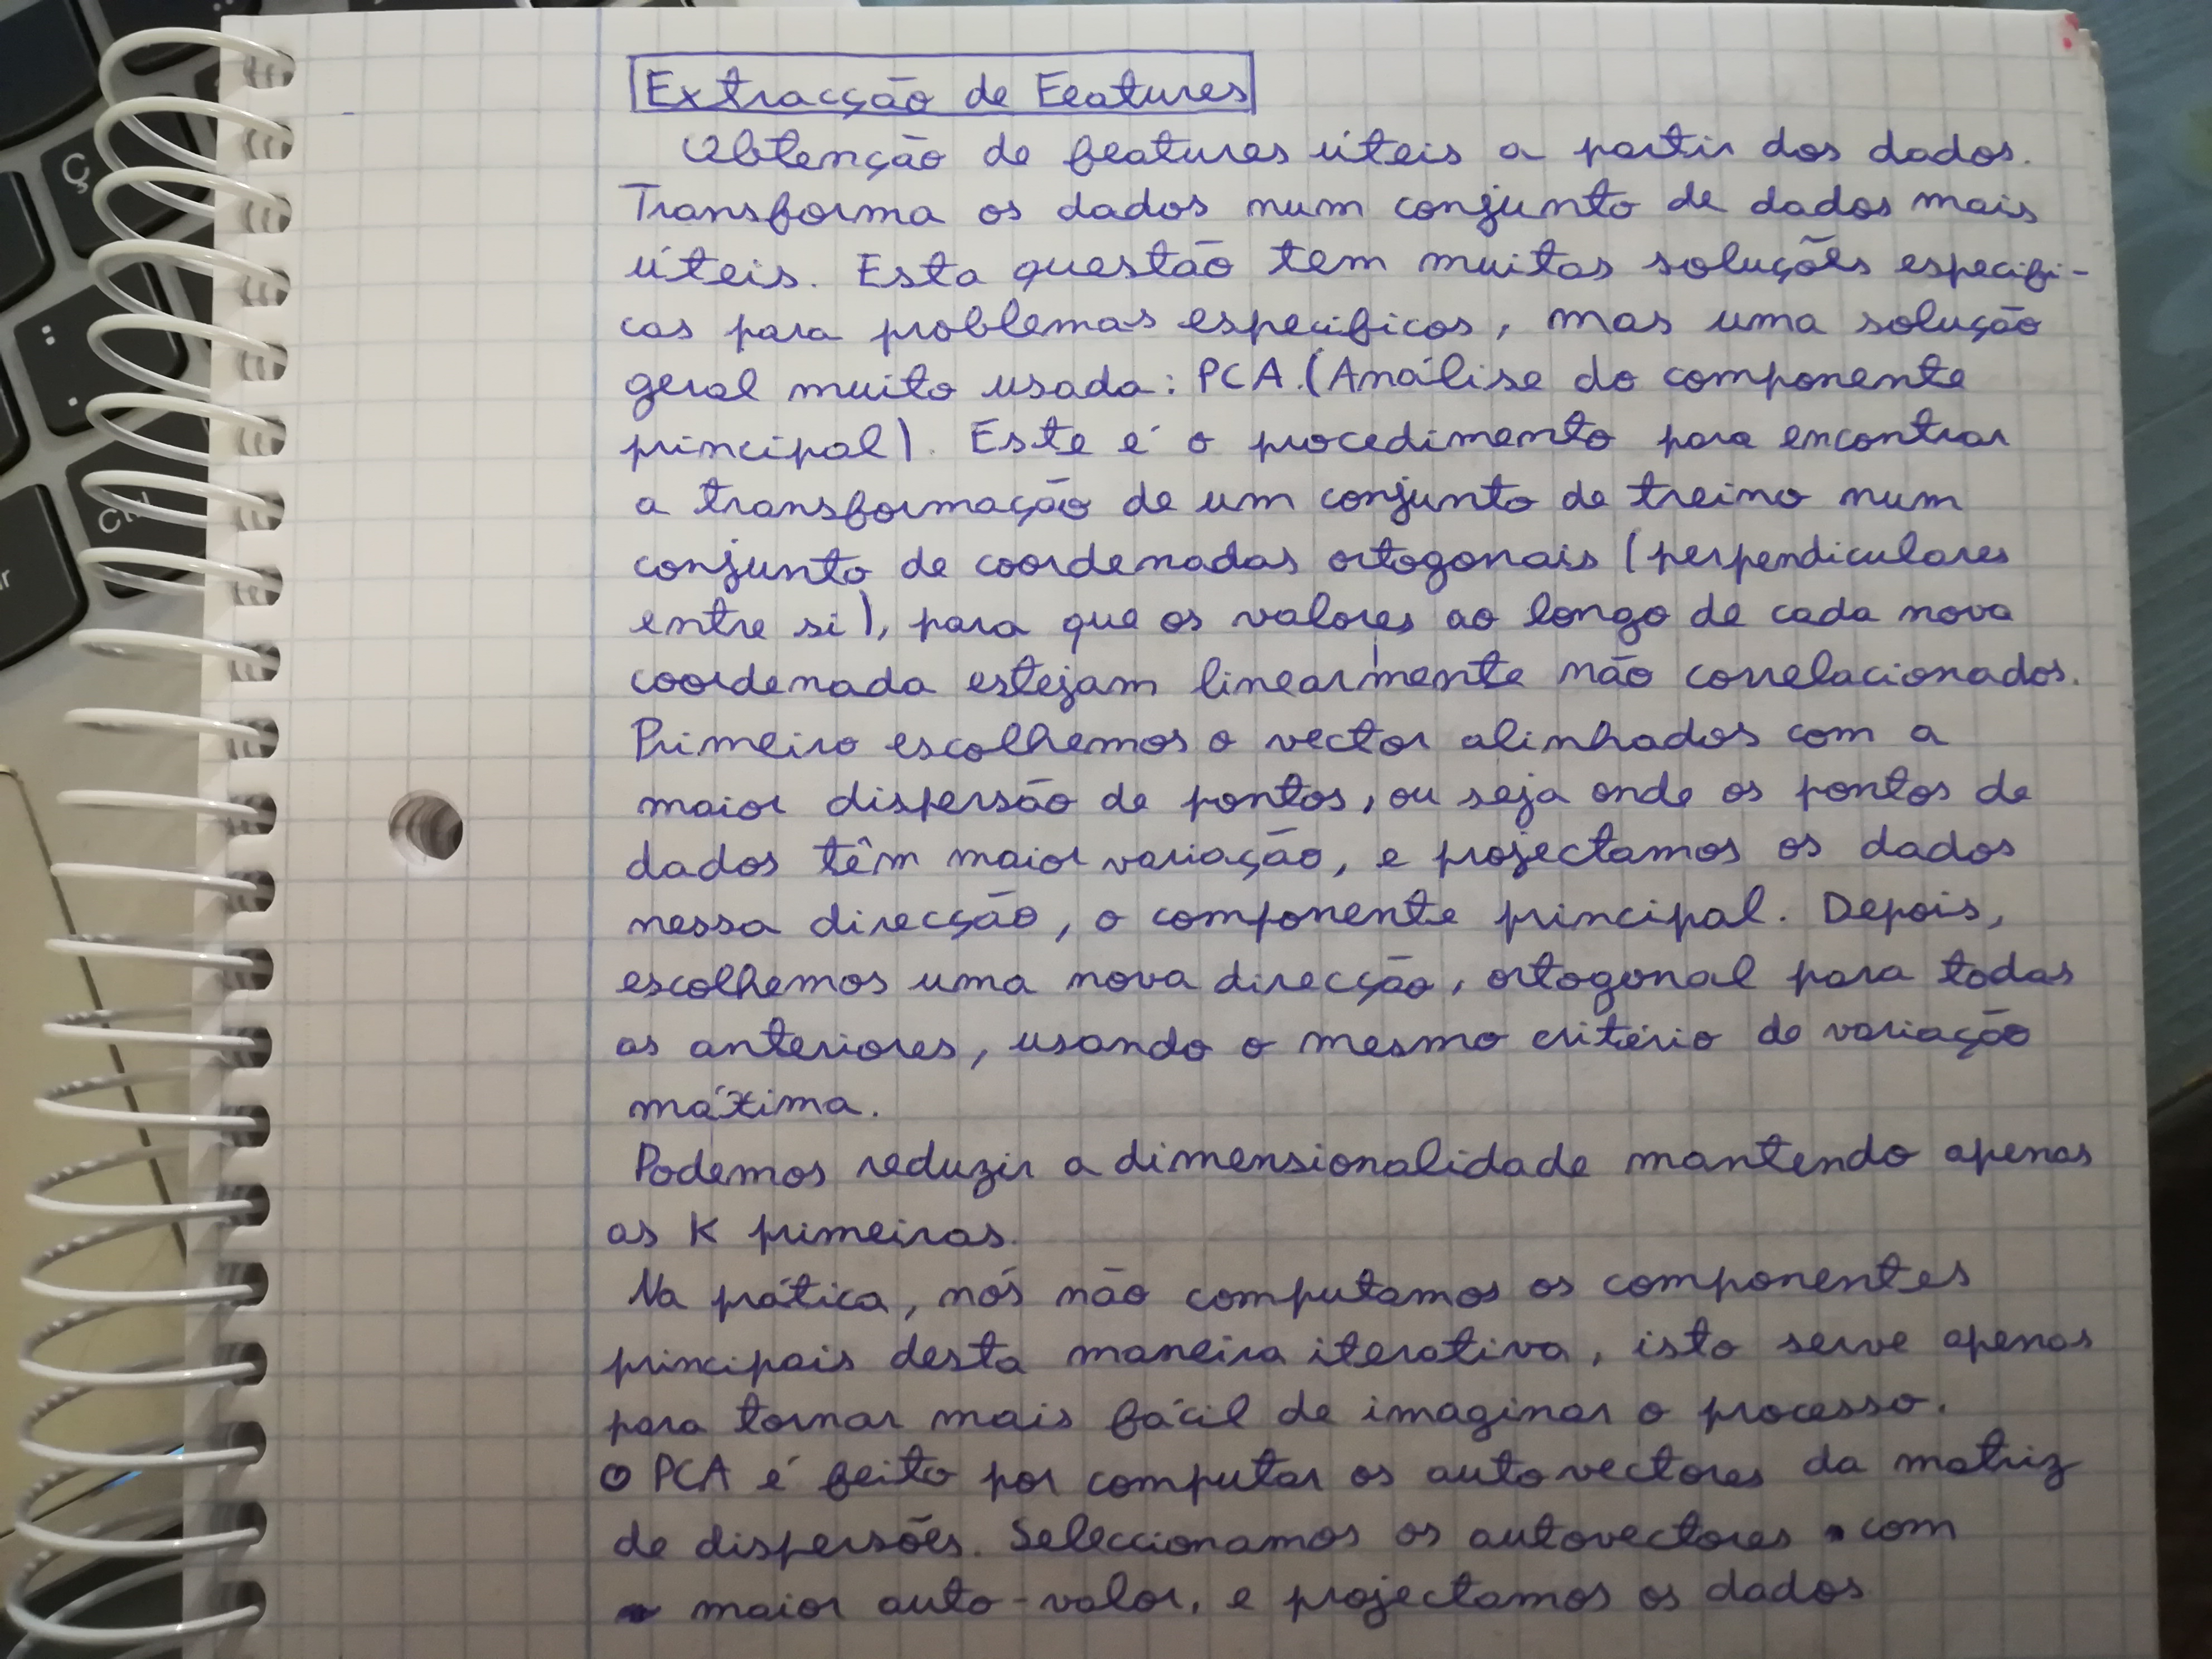 Extracção de Features
Obtenção de features úteis a partir dos dados.
Transforma os dados num conjunto de dados mais
úteis. Esta questão tem muitas soluções especifi-
cas para problemas especificos, mas uma solução
geral muito usada: PCA.(Análise do componente
principal). Este é o procedimento para encontrar
a transformação de um conjunto de treino num
conjunto de coordenadas ortogonais (perpendiculares
entre si), para que os valores ao longo de cada nova
coordenada estejam linearmente não correlacionados.
Primeiro escolhemos o vector alinhados com a
maior dispersão de pontos, ou seja onde os pontos de
dados têm maior variação, e projectamos os dados
nessa direcção, o componente principal. Depois,
escolhemos uma nova direcção, ortogonal para todas
as anteriores, usando o mesmo critério de variação
máxima.
Podemos reduzir a dimensionalidade mantendo apenas
as K primeiras.
Na prática, nós não computamos os componentes
principais desta maneira iterativa, isto serve apenas
para tornar mais fácil de imaginar o processo.
O PCA é feito por computar os autovectores da matriz
de dispersões. Seleccionamos os autovectores com
maior auto-valor, e projectamos os dados
Ç
Ctrl